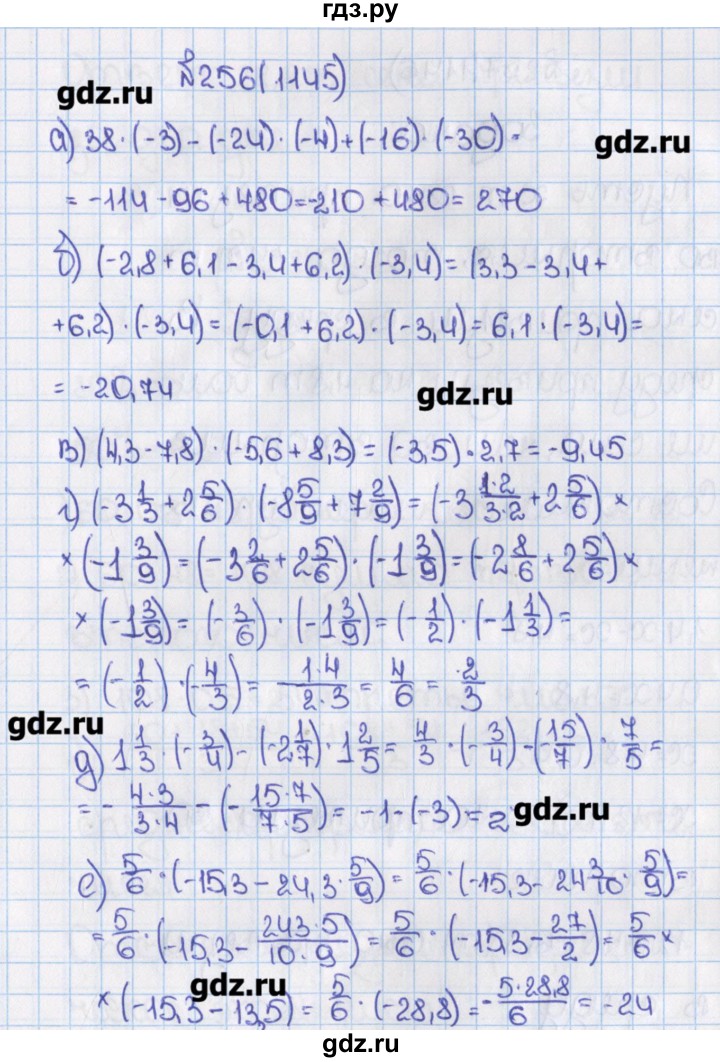 гдз.ру
№256(1145)
gdz.ru
а) 38·(-3)-(-24)·(-4)+(-16)·(-30)=
gdz.ru
= -114-96+480=-210+480=270
б) (-2,8+6,1-3,4+6,2)·(-3,4)=(3,3-3,4+
+6,2)·(-3,4)=(-0,1+6,2)·(-3,4)=6,1·(-3,4)=
= -20,74
gdz.ru
в) (4,3-7,8)·(-5,6+8,3)=(-3,5)·2,7=-9,45
г) (-3 1/3+2 5/6)·(-8 5/9+7 2/9)=(-3 1·2/3·2+2 5/6)×
×(-1 3/9)=(-3 2/6+2 5/6)·(-1 3/9)=(-2 8/6+2 5/6)×
×(-1 3/9)=(-3/6)·(-1 3/9)=(-1/2)·(-1 1/3)=
=(-1/2)·(-4/3)=1·4/2·3=4/6=2/3
gdz.ru
д) 1 1/3·(-3/4)-(-2 1/7)·1 2/5=4/3·(-3/4)-(15/7)·7/5=
=-4·3/3·4-(-15·7/7·5)=-1-(-3)=2
gdz.ru
е) 5/6·(-15,3-24,3·5/9)=5/6·(-15,3-24 3/10·5/9)=
=5/6·(-15,3-243·5/10·9)=5/6·(-15,3-27/2)=5/6×
gdz.ru
×(-15,3-13,5)=5/6·(-28,8)=-5·28,8/6=-24
gdz.ru